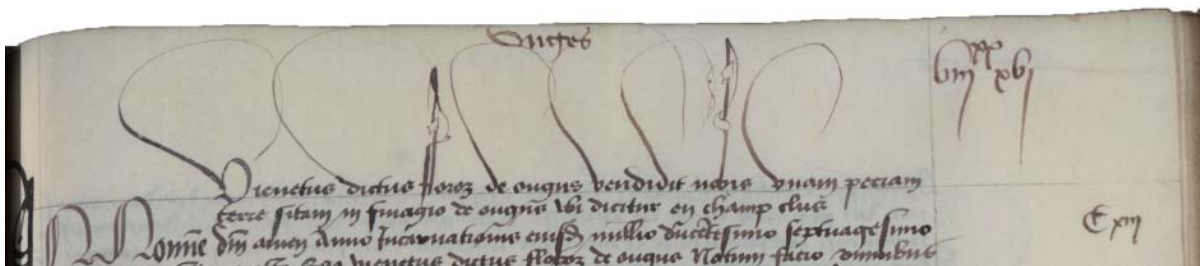 Ouges
viii xx xvi
Vienetus dictus floroz de ougus vendidit nobis unam peciam
terre sitam in finagio de ougus ubi dicitur en champ clus
Nomine dni amen Anno Incarnationis eiusd millio ducetesimo septuagesimo
C xiii
vienetus dictus floroz de ougus Notum facio omnibus